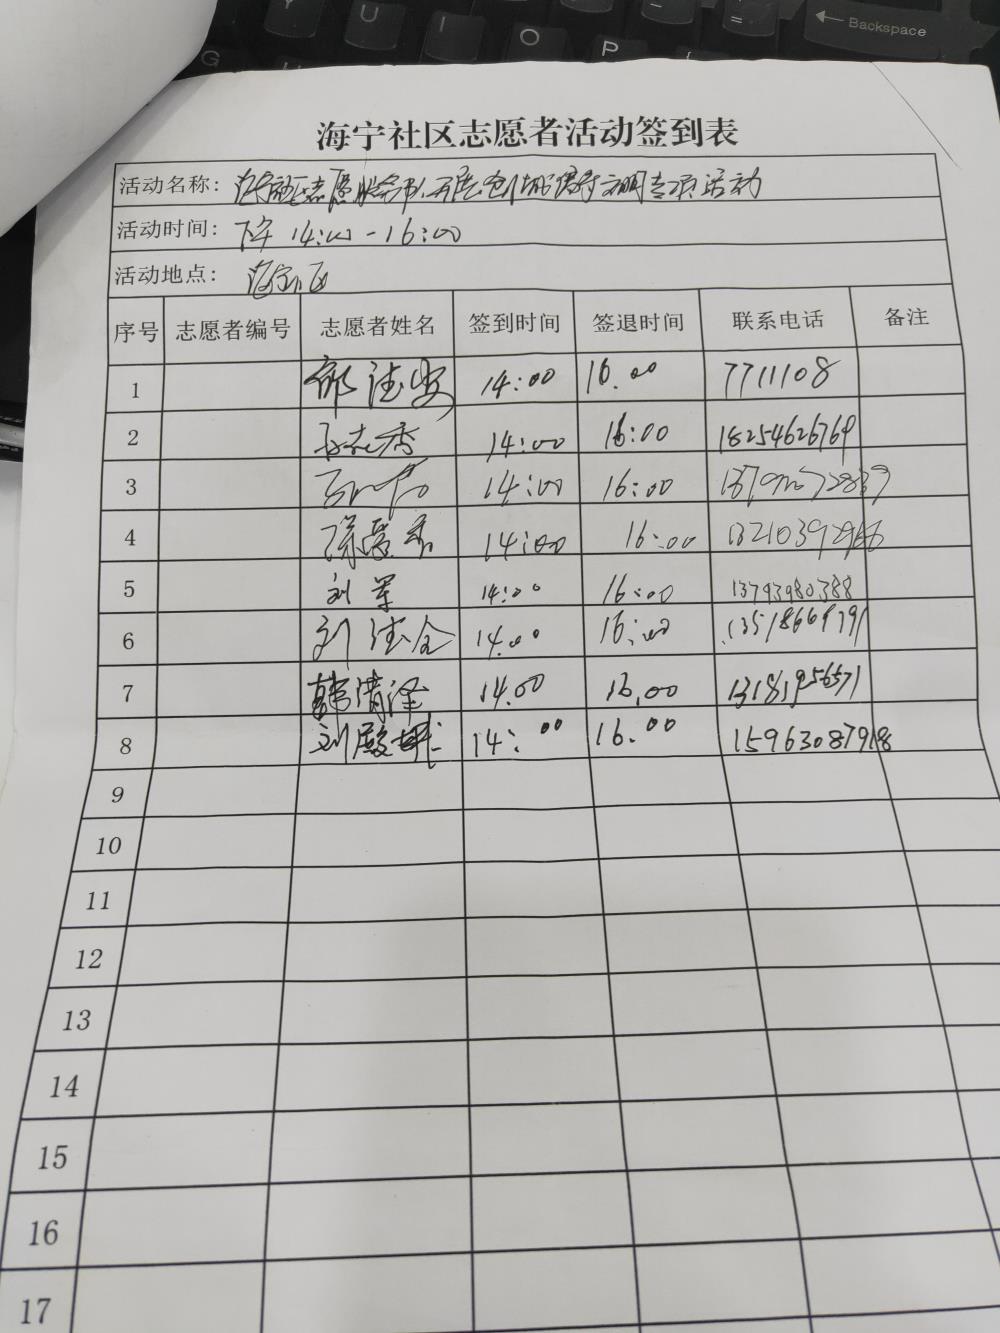 Y U I O P
← Backspace
G
海宁社区志愿者活动签到表
活动名称: 海宁社区志愿服务队开展创城携行文明专项活动
活动时间: 下午 14:00-16:00
活动地点: 海宁小区
序号 志愿者编号 志愿者姓名 签到时间 签退时间 联系电话 备注
1 14:00 16.00 7711108
2 14:00 16:00 18254626769
3 14:00 16:00
4 14:00 16:00
5 刘军 14:00 16:00 13793980388
6 刘德全 14.00 16:00 13518669791
7 韩清泽 14.00 16.00 13181956571
8 刘殿 14:00 16.00 15963087918
9
10
11
12
13
14
15
16
17